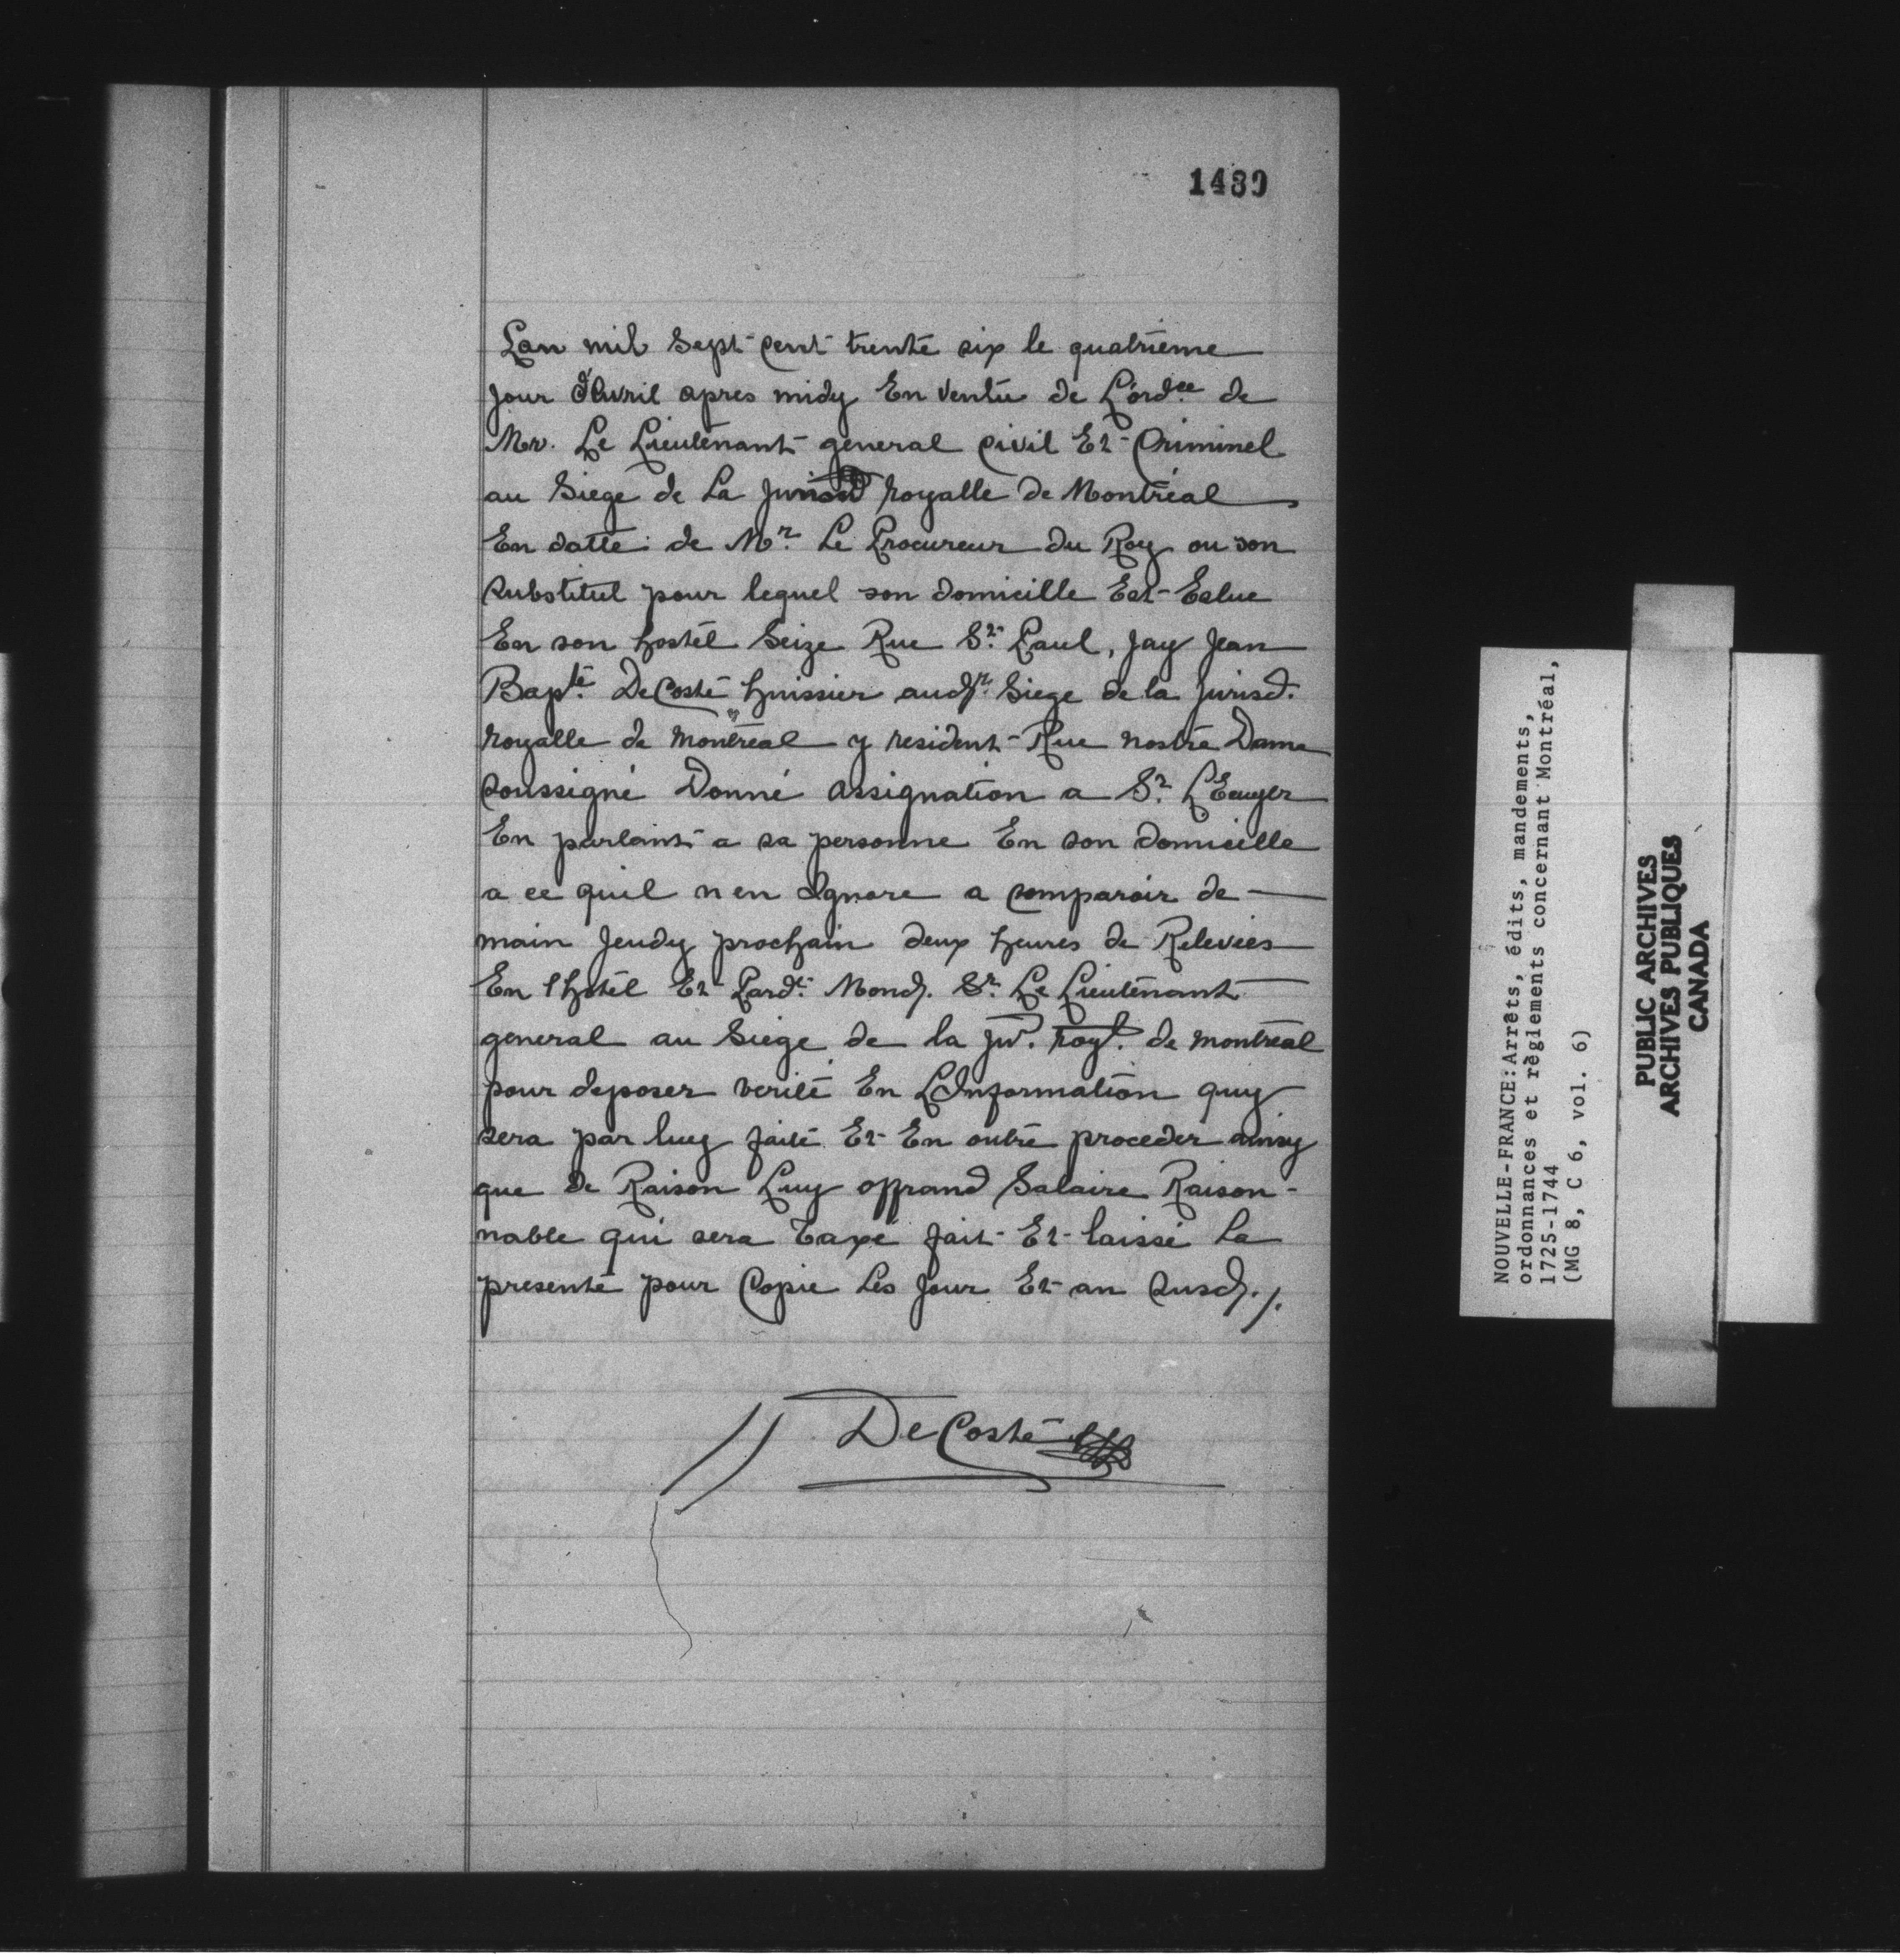 1489
Lan mil Sept cent trente six le quatrieme
jour d'Avril apres midy En Vertu de L'ordce de
Mr. Le Lieutenant general civil Et Criminel
au Siege de La Jurisd royalle de Montréal
En datte de Mr. Le Procureur du Roy ou son
substitut pour lequel son domicille Est Eslue
En son hostel Seize Rue St. Paul, jay Jean
Bapte. DeCoste huissier audt. Siege de la Jurisd.
royalle de montreal y resident Rue nostre Dame
soussigné Donné assignation a Sr. L'Ecuyer
En parlant a sa personne En son domicille
a ce quil n en Ignore a comparoir de
main Jeudy prochain deux heures de Relevées
En l hotel Et Pardt. Mond. Sr. Le Lieutenant
general au Siege de la Jur. roy. de montreal
pour deposer verité En LInformation quy
sera par luy faite Et En outre proceder ainsy
que de Raison Luy offrand Salaire Raison-
nable qui sera Taxé fait Et laissé La
presente pour Copie Les Jour Et an Susd. /.
DeCoste
NOUVELLE-FRANCE:Arrêts, édits, mandements,
ordonnances et règlements concernant Montréal,
1725-1744
(MG 8, C 6, vol. 6)
PUBLIC ARCHIVES
ARCHIVES PUBLIQUES
CANADA